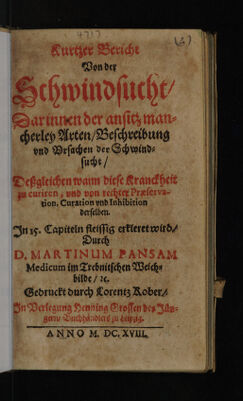 4717
(3)
Kurtzer Bericht
Von der
Schwindsucht/
Darinnen der ansitz man-
cherley Arten/Beschreibung
vnd Vrsachen der Schwind-
sucht/
Deßgleichen wann diese Kranckheit
zu curiren, vnd von rechter Præserva-
tion, Curation vnd Inhibition
derselben.
In 15. Capiteln fleissig erkleret wird/
Durch
D. MARTINUM PANSAM
Medicum im Trebnitschen Weich-
bilde/ ꝛc.
Gedruckt durch Lorentz Kober/
In Verlegung Henning Grossen des Jün-
gern/ Buchhändlers zu Leipzig.
ANNO M. DC. XVIII.